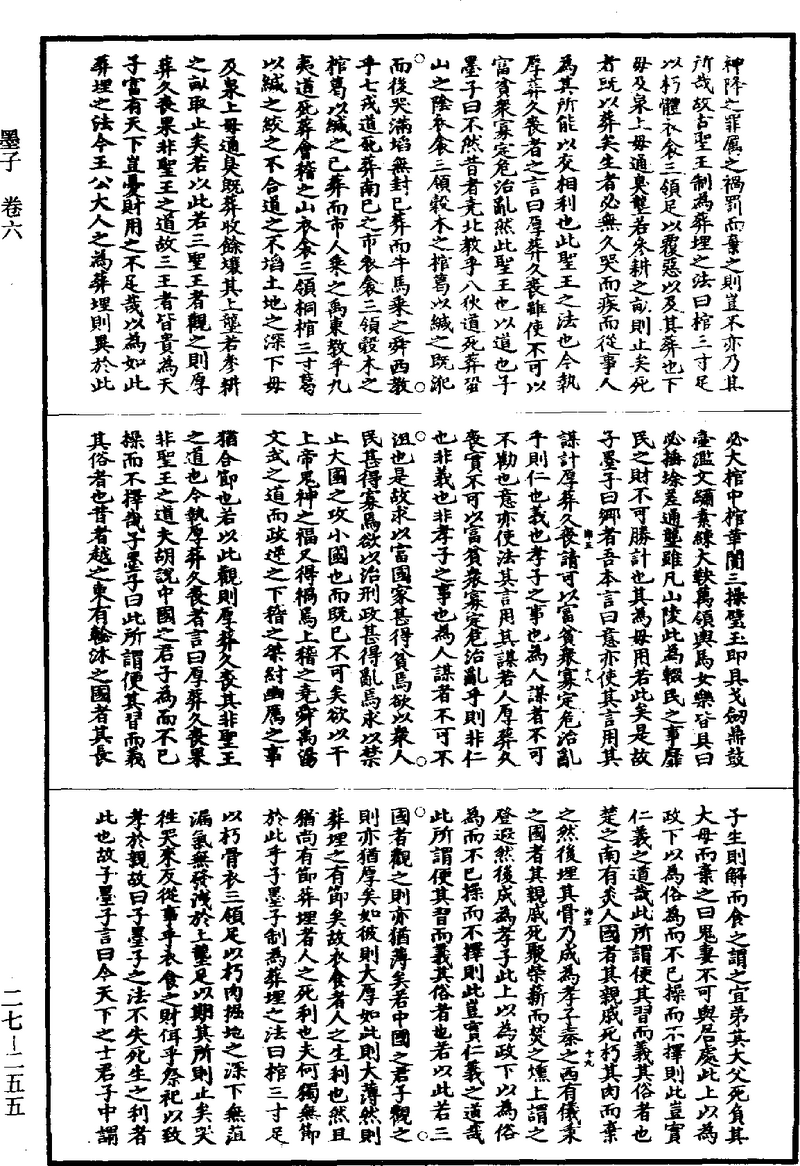 神降之罪厲之禍罰而棄之則豈不亦乃其
所哉故古聖王制為葬埋之法曰棺三寸足
以朽體衣衾三領足以覆惡以及其葬也下
毋及泉上毋通臭壟若參耕之畝則止矣死
者既以葬矣生者必無久哭而疾而從事人
為其所能以交相利也此聖王之法也今執
厚葬久喪者之言曰厚葬久喪雖使不可以
富貧衆寡定危治亂然此聖王也以道也子
墨子曰不然昔者堯北教乎八狄道死葬蛩
山之陰衣衾三領榖木之棺葛以緘之既
而後哭滿埳無封已葬而牛馬乘之舜西教
乎七戎道死葬南巳之市衣衾三領榖木之
棺葛以緘之已葬而市人乘之禹東教乎九
夷道死葬會稽之山衣衾三領桐棺三寸葛
以緘之絞之不合道之不埳土地之深下毋
及泉上毋通臭既葬收餘壤其上壟若參耕
之畝取止矣若以此若三聖王者觀之則厚
葬久喪果非聖王之道故三王者皆貴為天
子富有天下豈憂財用之不足哉以為如此
葬埋之法今王公大人之為葬埋則異於此
必大棺中棺革闠三操璧玉即具戈劒鼎鼓
壼濫文繡素練大鞅萬領輿馬女樂皆具曰
必捶垛差通壟雖凡山陵此為輟民之事靡
民之財不可勝計也其為毋用若此矣是故
子墨子曰鄉者吾本言曰意亦使其言用其
謀計厚葬久喪請可以富貧衆寡定危治亂
乎則仁也義也孝子之事也為人謀者不可
不勸也意亦使法其言用其謀若人厚葬久
喪實不可以富貧衆寡定危治亂乎則非仁
也非義也非孝子之事也為人謀者不可不
沮也是故求以富國家甚得貧焉欲以衆人
民甚得寡焉欲以治刑政甚得亂焉求以禁
止大國之攻小國也而既已不可矣欲以干
上帝鬼神之福又得禍焉上稽之堯舜禹湯
文武之道而政逆之下稽之桀紂幽厲之事
猶合節也若以此觀則厚葬久喪其非聖王
之道也今執厚葬久喪者言曰厚葬久喪果
非聖王之道夫胡說中國之君子為而不已
操而不擇哉子墨子曰此所謂便其習而義
其俗者也昔者越之東有輆沐之國者其長
子生則解而食之謂之宜弟其大父死負其
大母而棄之曰鬼妻不可與居處此上以為
政下以為俗為而不已操而不擇則此豈實
仁義之道哉此所謂便其習而義其俗者也
楚之南有炎人國者其親戚死朽其肉而棄
之然後埋其骨乃成為孝子秦之西有儀秉
之國者其親戚死聚柴薪而焚之燻上謂之
登遐然後成為孝子此上以為政下以為俗
為而不已操而不擇則此豈實仁義之道哉
此所謂便其習而義其俗者也若以此若三
國者觀之則亦猶薄矣若中國之君子觀之
則亦猶厚矣如彼則大厚如此則大薄然則
葬埋之有節矣故衣食者人之生利也然且
猶尚有節葬埋者人之死利也夫何獨無節
於此乎子墨子制為葬埋之法曰棺三寸足
以朽骨衣三領足以朽肉掘地之深下無菹
漏氣無發洩於上壟足以期其所則止矣哭
往哭來反從事乎衣食之財佴乎祭祀以致
孝於親故曰子墨子之法不失死生之利者
此也故子墨子言曰今天下之士君子中謂
墨子 卷六
二七—二五五